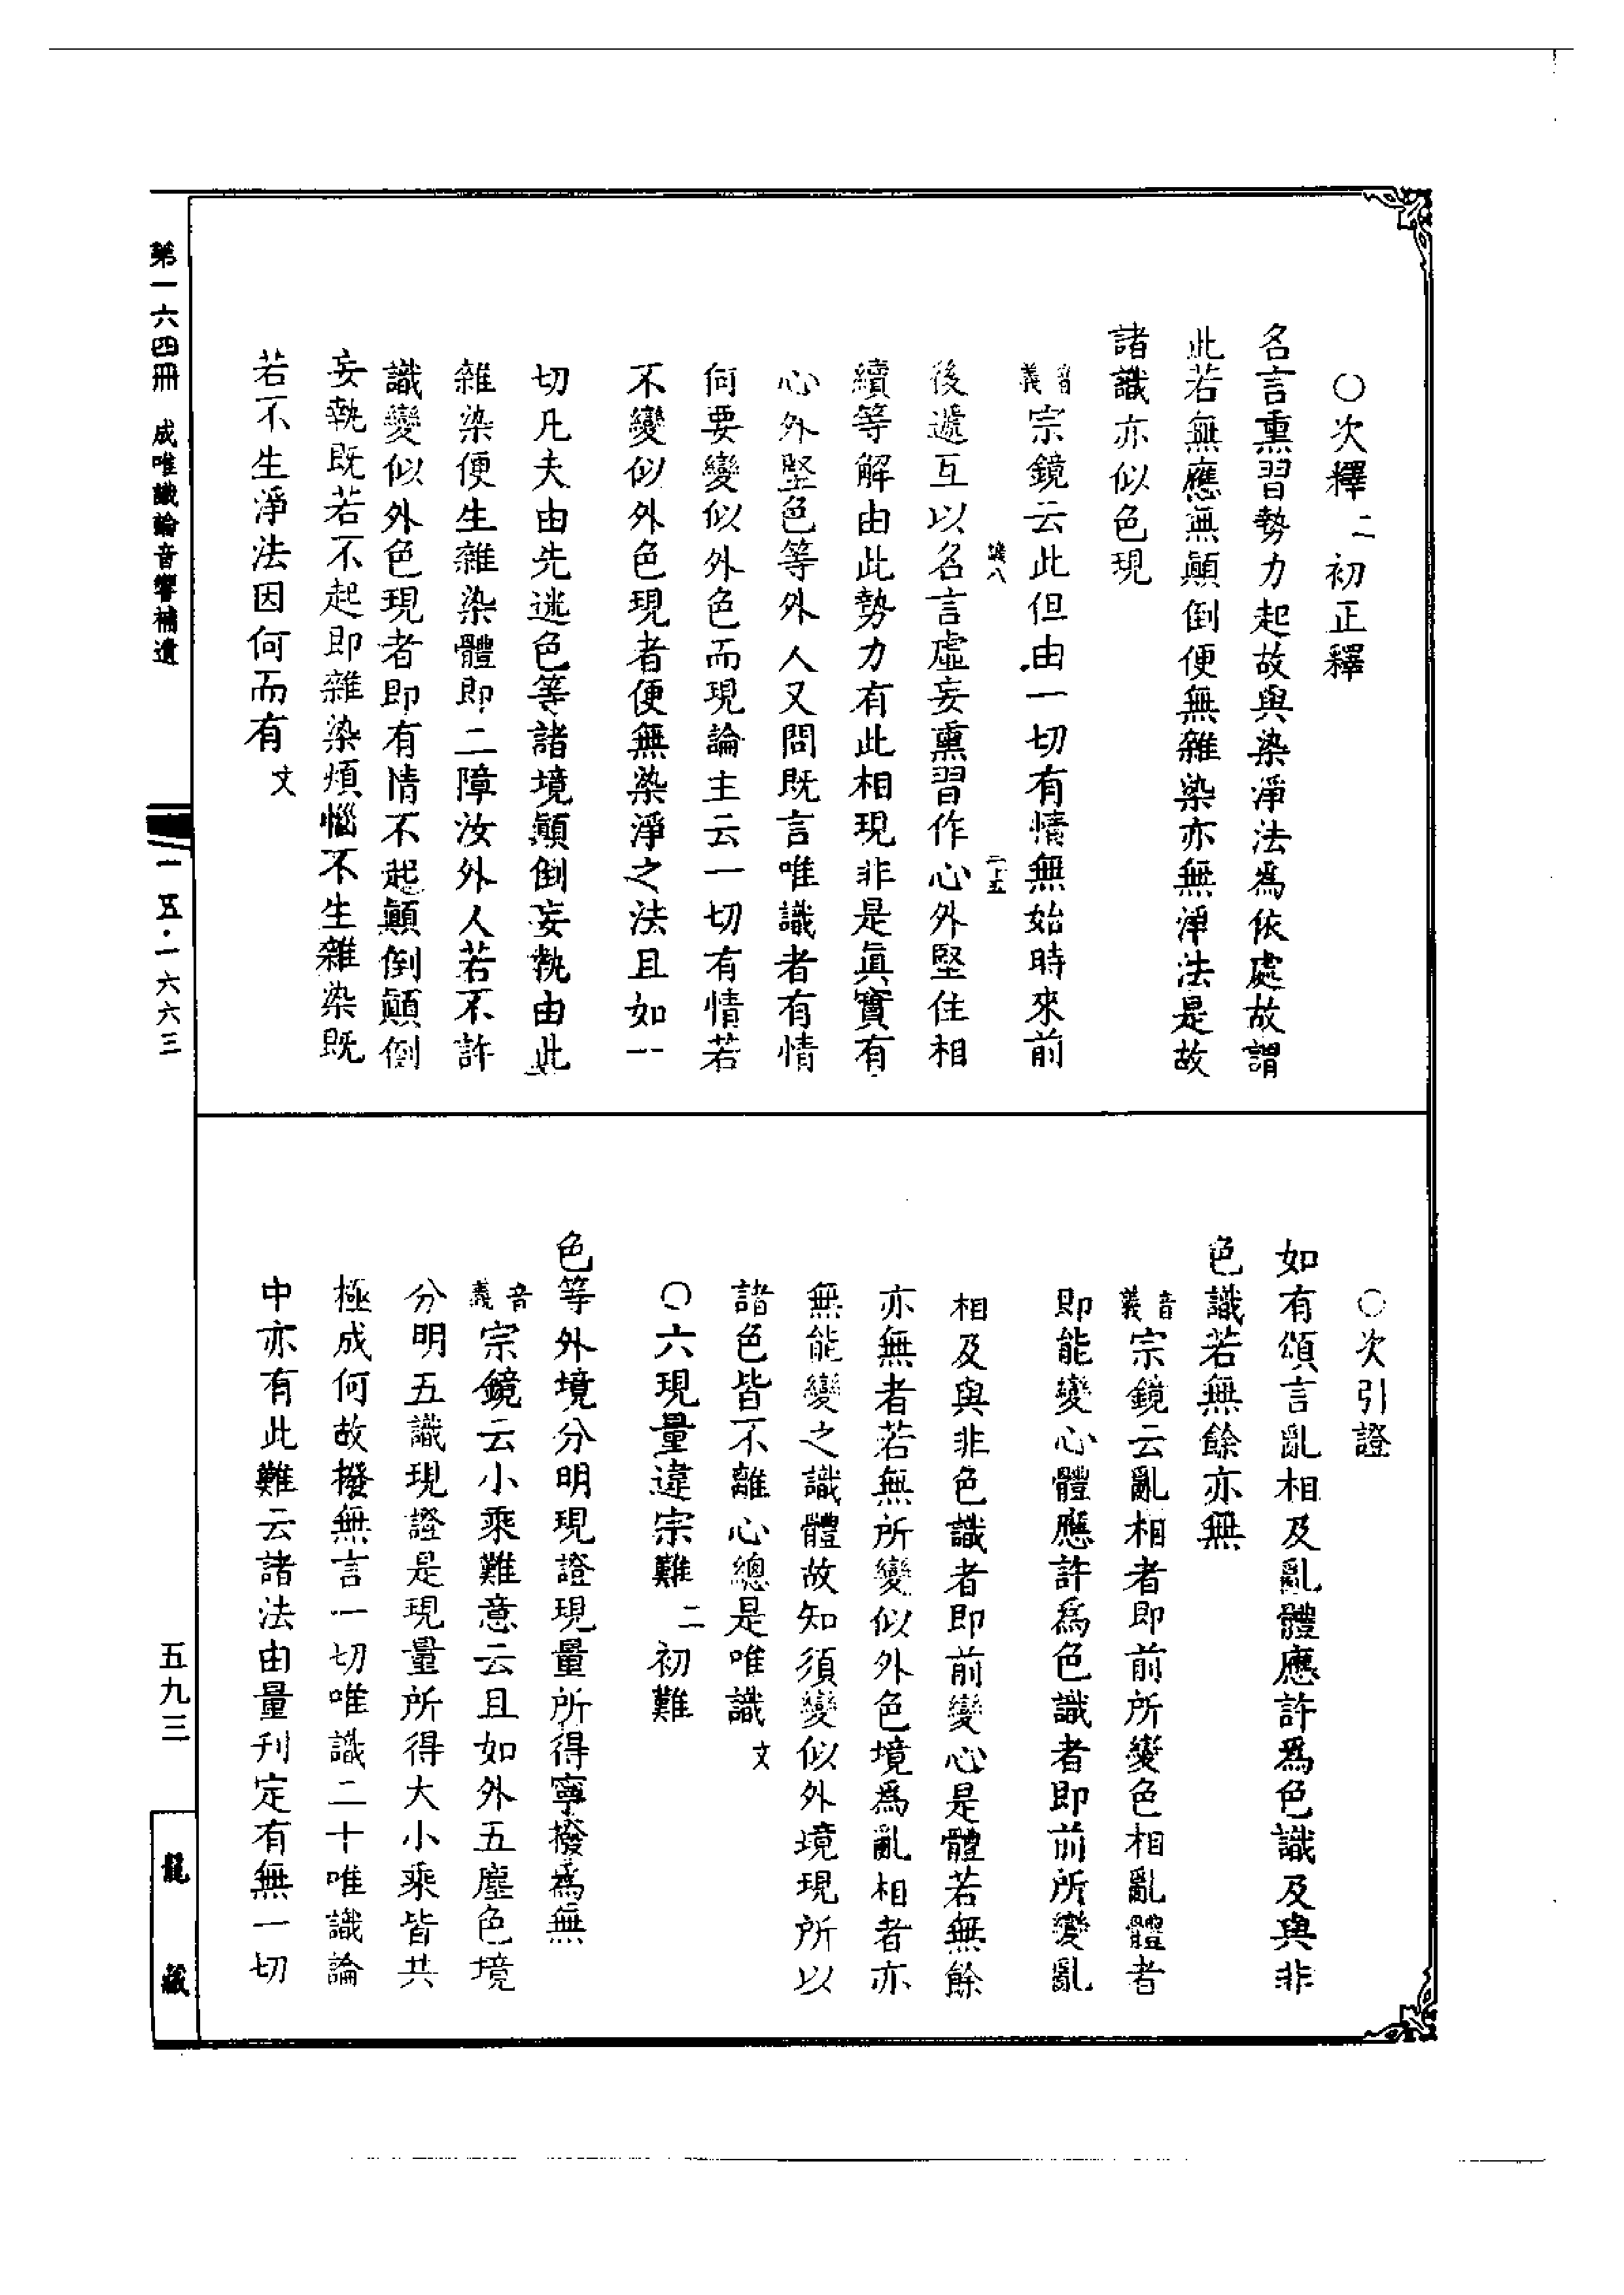 ○次釋二初正釋
名言熏習勢力起故與染淨法爲依處故謂
此若無應無顚倒便無雜染亦無淨法是故
諸識亦似色現
音義宗鏡云此但由一切有情無始時來前
後遞互以名言虛妄熏習作心外堅住相
續等解由此勢力有此相現非是眞實有
心外堅色等外人又問既言唯識者有情
何要變似外色而現論主云一切有情若
不變似外色現者便無染淨之法且如一
切凡夫由先迷色等諸境顚倒妄執由此
雜染便生雜染體即二障汝外人若不許
識變似外色現者即有情不起顚倒顚倒
妄執既若不起即雜染煩惱不生雜染既
若不生淨法因何而有文
○次引證
如有頌言亂相及亂體應許爲色識及與非
色識若無餘亦無
音義宗鏡云亂相者即前所變色相亂體者
即能變心體應許爲色識者即前所變亂
相及與非色識者即前變心是體若無餘
亦無者若無所變似外色境爲亂相者亦
無能變之識體故知須變似外境現所以
諸色皆不離心總是唯識文
○六現量違宗難二初難
色等外境分明現證現量所得寧撥爲無
音義宗鏡云小乘難意云且如外五塵色境
分明五識現證是現量所得大小乘皆共
極成何故撥無言一切唯識二十唯識論
中亦有此難云諸法由量刋定有無一切
第一六四冊 成唯識論音響補遺
一五·一六六三
五九三
龍藏